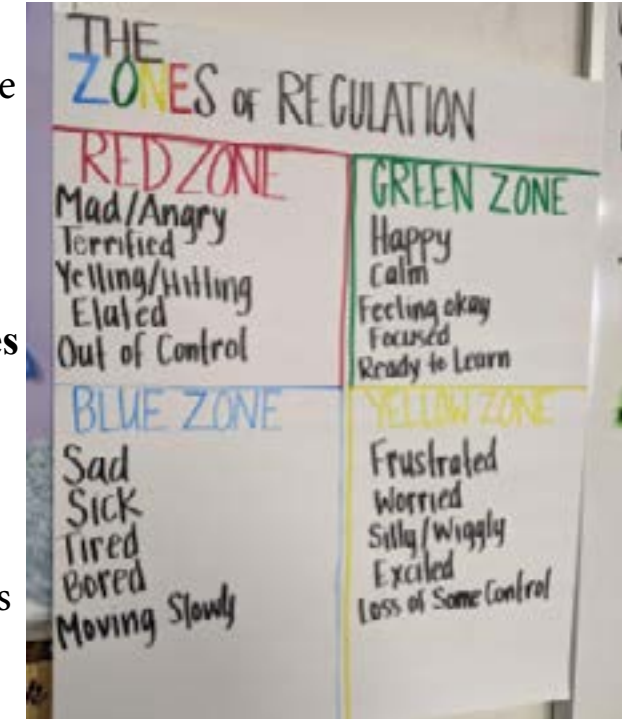 THE
ZONES OF REGULATION
RED ZONE
Mad/Angry
Terrified
Yelling/Hitting
Elated
Out of Control
GREEN ZONE
Happy
Calm
Feeling okay
Focused
Ready to Learn
BLUE ZONE
Sad
Sick
Tired
Bored
Moving Slowly
YELLOW ZONE
Frustrated
Worried
Silly/Wiggly
Excited
Loss of Some Control